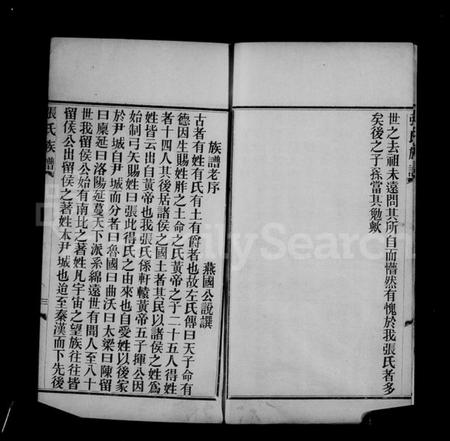 世之去祖未遠問其所自而懵然有愧於我張氏者多
矣後之子孫當其勉歟
張氏族譜
族譜老序
燕國公說譔
古者有姓有氏有土有爵者也故左氏傳曰天子命有
德因生賜姓胙之土命之氏黃帝之子二十五人得姓
者十四人其後居諸侯之國土者其民以諸侯之姓為
姓皆云出自黃帝也我張氏係軒轅黃帝五子揮公因
始制弓矢賜姓曰張此得氏之由來也自受姓以後家
於尹城自尹城而分者曰魯國曰曲沃曰太梁曰陳留
曰廩延曰洛陽延蔓天下派系綿遠世有聞人至八十
世我留侯公始有南北之著姓凡宇宙之望族往往皆
留侯公出留侯之著姓本尹城也迨至秦漢而下先後
張氏族譜
FamilySearch